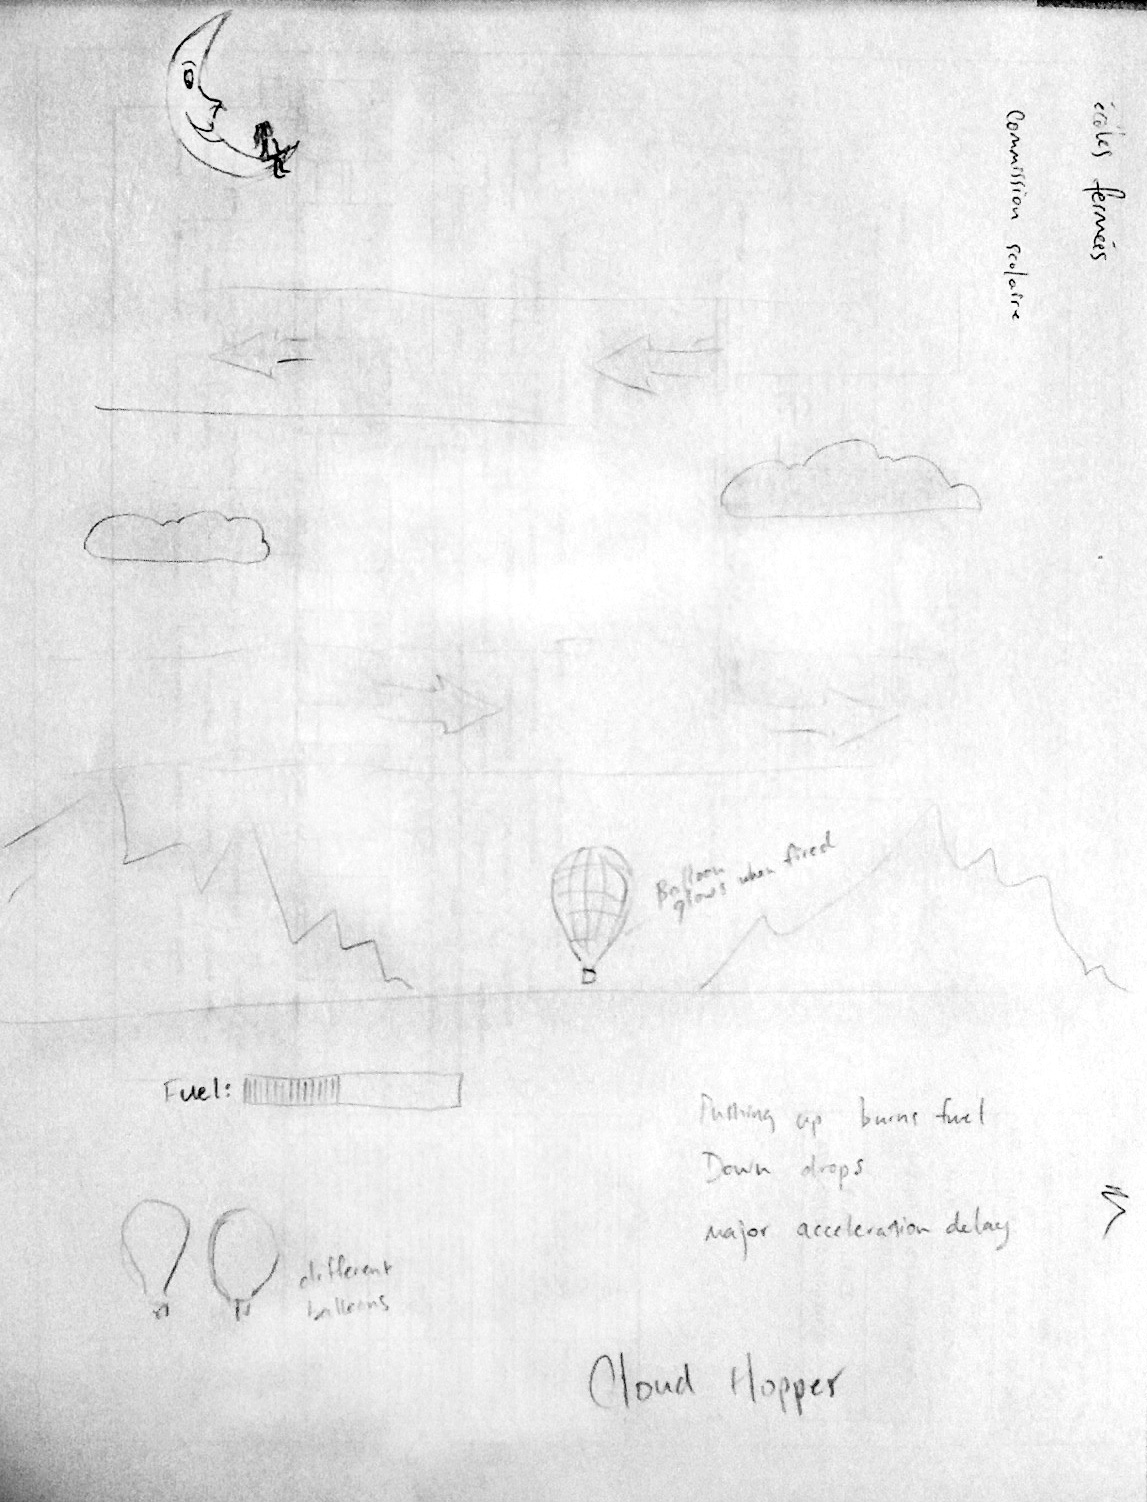 écoles fermées
Commission scolaire
Balloon
glows when fired
Fuel:
Pushing up burns fuel
Down drops
Major acceleration delay
different
balloons
Cloud Hopper